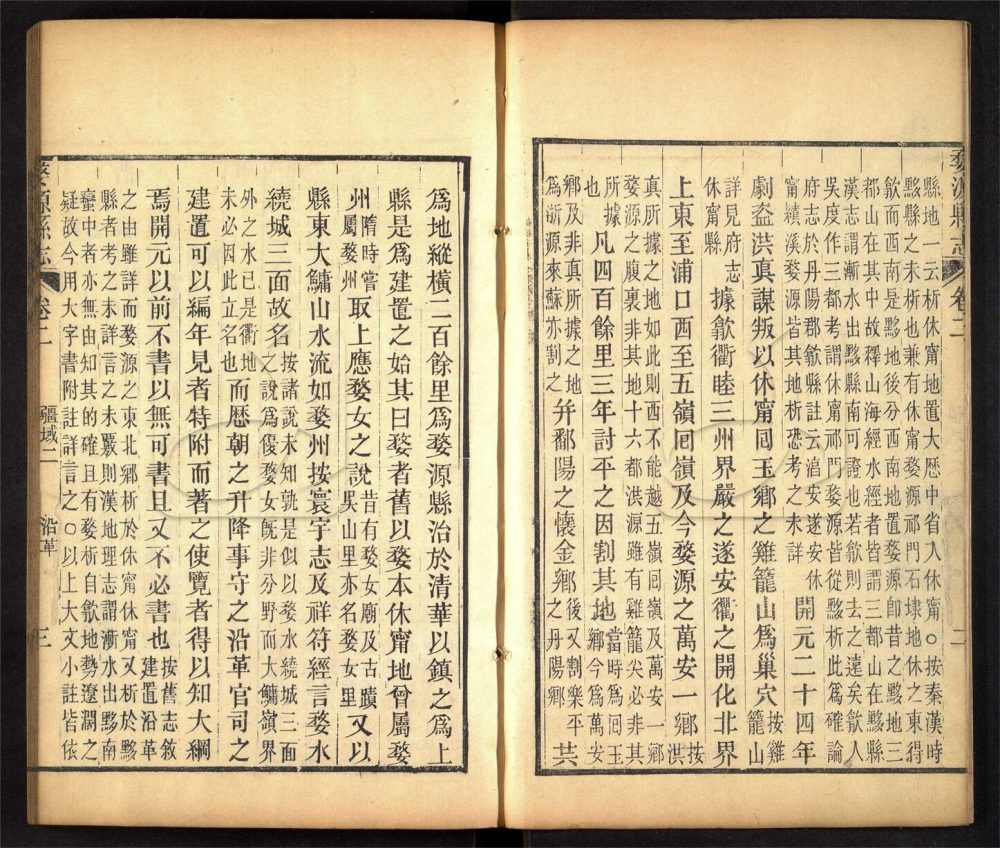 婺源縣志
卷二
二
縣地一云析休甯地置大歷中省入休甯○按秦漢時
黟縣之未析也兼有休甯婺源祁門石埭地休之東得
歙而西南是黟地後分西南地置婺源卽昔之黟地三
都山在其中故釋山海經水經者皆謂三都山在黟縣
漢志謂漸水出黟縣南可證也若歙則去之遠矣歙人
吳度作三都考謂休甯祁門婺源皆從黟析此爲確論
府志於丹陽郡歙縣註云安遂安休
甯績溪婺源皆其地析恐考之未詳
開元二十四年
劇盜洪真謀叛以休甯回玉鄉之雞籠山爲巢穴
按雞
籠山
詳見府志
休甯縣
據歙衢睦三州界嚴之遂安衢之開化北界
上東至浦口西至五嶺回嶺及今婺源之萬安一鄉
按
洪
真所據之地如此則西不能越五嶺回嶺及萬安一鄉
婺源之腹裏非其地十六都洪源雖有雞籠尖必非其
所據
也
凡四百餘里三年討平之因割其地
當時爲回玉
鄉今爲萬安
鄉及非真所據之地
爲浙源來蘇亦割之
幷鄱陽之懷金鄉
後又割樂平
之丹陽鄉
共
爲地縱橫二百餘里爲婺源縣治於清華以鎮之爲上
縣是爲建置之始其曰婺者舊以婺本休甯地曾屬婺
州
隋時嘗
屬婺州
取上應婺女之說
昔有婺女廟及古蹟
吳山里亦名婺女里
又以
縣東大鱅山水流如婺州按寰宇志及祥符經言婺水
繞城三面故名
按諸說未知孰是似以婺水繞城三面
之說爲優婺女旣非分野而大鱅嶺界
外之水已是衢地
未必因此立名也
而歴朝之升降事守之沿革官司之
建置可以編年見者特附而著之使覽者得以知大綱
焉開元以前不書以無可書且又不必書也
按舊志敘
建置沿革
之由雖詳而婺源之東北鄉析於休甯休又析於黟
縣者考之未詳言之未覈則漢地理志謂漸水出黟南
蠻中者亦無由知其的確且有婺析自歙地勢遼濶之
疑故今用大字書附註詳言之○以上大文小註皆依
婺源縣志
卷二
疆域二
沿革
三